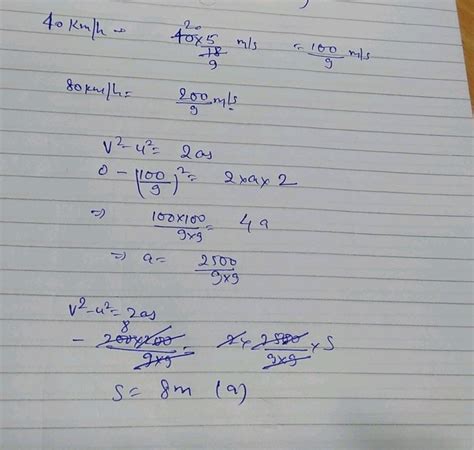 40 km/h → 20 40×5/18 9 m/s = 100/9 m/s
80 km/h = 200/9 m/s
v²-u² = 2as
0 - (100/9)² = 2×a×2
⇒ 100×100/9×9 = 4a
⇒ a = 2500/9×9
v²-u² = 2as
8
- 200×200/9×9 = 2× 2500/9×9 ×S
S = 8m (a)